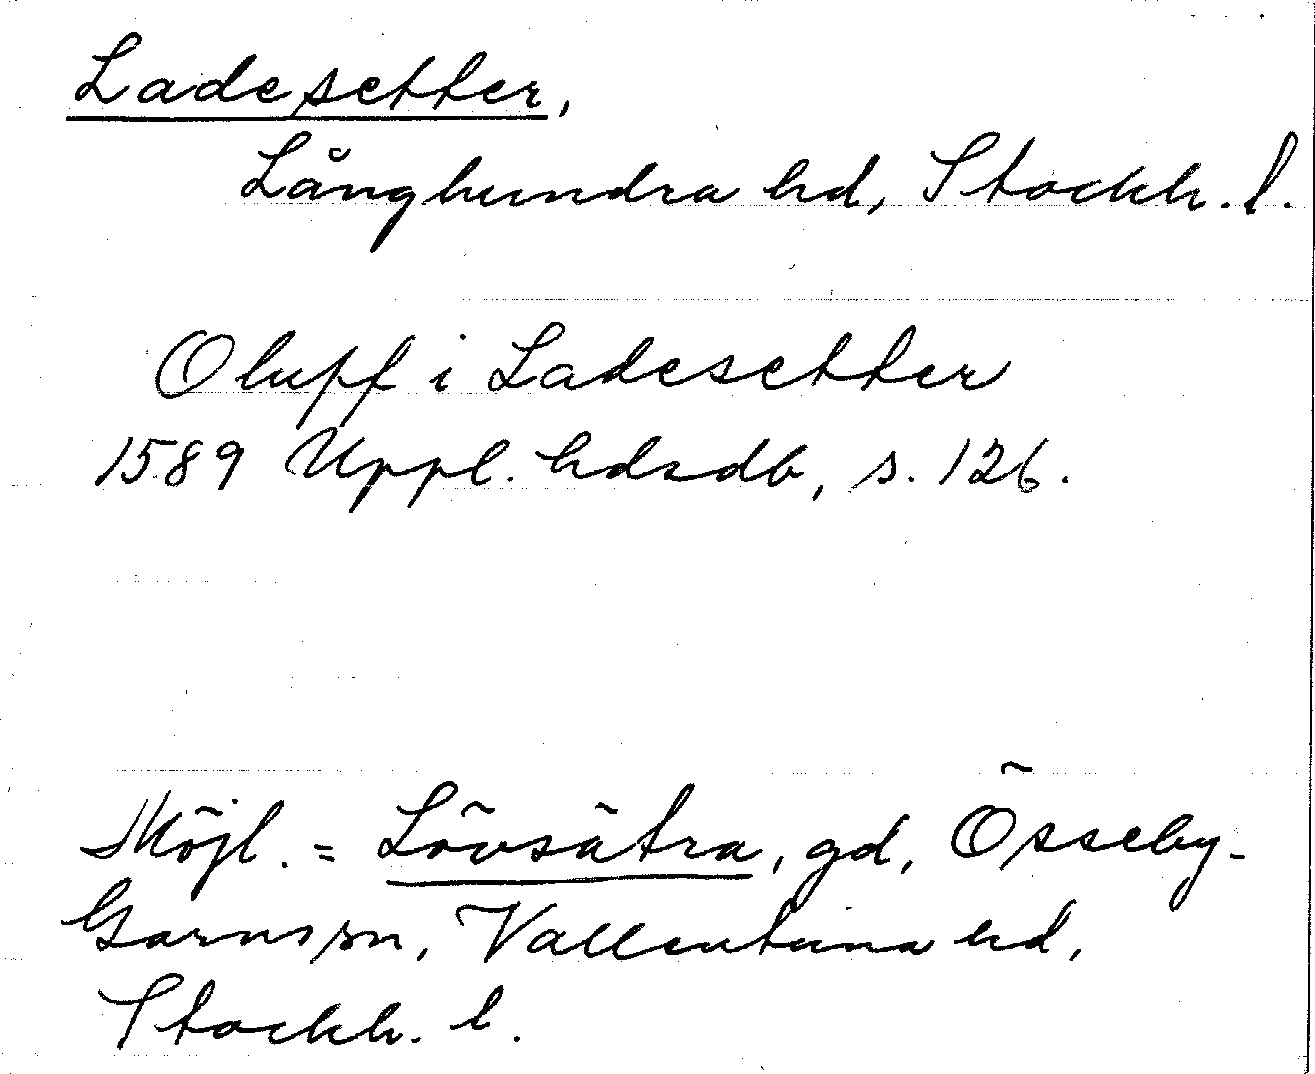 Ladesetter,
Långhundra hd, Stockh. l.
Olupf i Ladesetter
1589 Uppl. hdsdb, s. 126.
Möjl. = Lövsätra, gd, Össeby-
Garns sn, Vallentuna hd,
Stockh. l.